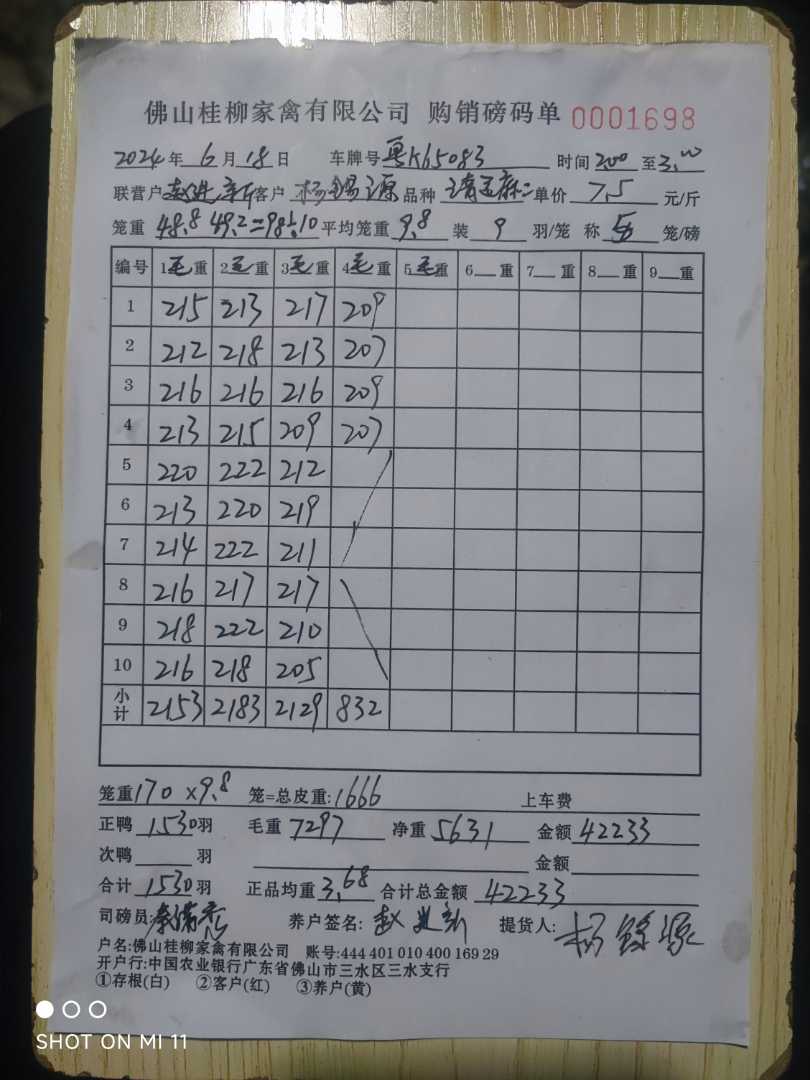 佛山桂柳家禽有限公司 购销磅码单 0001698
2024年 6月 18日 车牌号 粤K65083 时间 2:00 至 3:00
联营户 赵进新 客户 杨锡源 品种 单价 7.5 元/斤
笼重 48.8 49.2=98÷10 平均笼重 9.8 装 9 羽/笼 称 5 笼/磅
编号 1毛重 2毛重 3毛重 4毛重 5毛重 6 重 7 重 8 重 9 重
1 215 213 217 209
2 212 218 213 207
3 216 216 216 209
4 213 215 209 207
5 220 222 212
6 213 220 219
7 214 222 211
8 216 217 217
9 218 222 210
10 216 218 205
小计 2153 2183 2129 832
笼重170×9.8 笼=总皮重:1666 上车费
正鸭 1530羽 毛重 7297 净重 5631 金额 42233
次鸭 羽 金额
合计 1530羽 正品均重 3.68 合计总金额 42233
司磅员: 养户签名: 赵进新 提货人: 杨锡源
户名:佛山桂柳家禽有限公司 账号:444 401 010 400 169 29
开户行:中国农业银行广东省佛山市三水区三水支行
①存根(白) ②客户(红) ③养户(黄)
SHOT ON MI 11